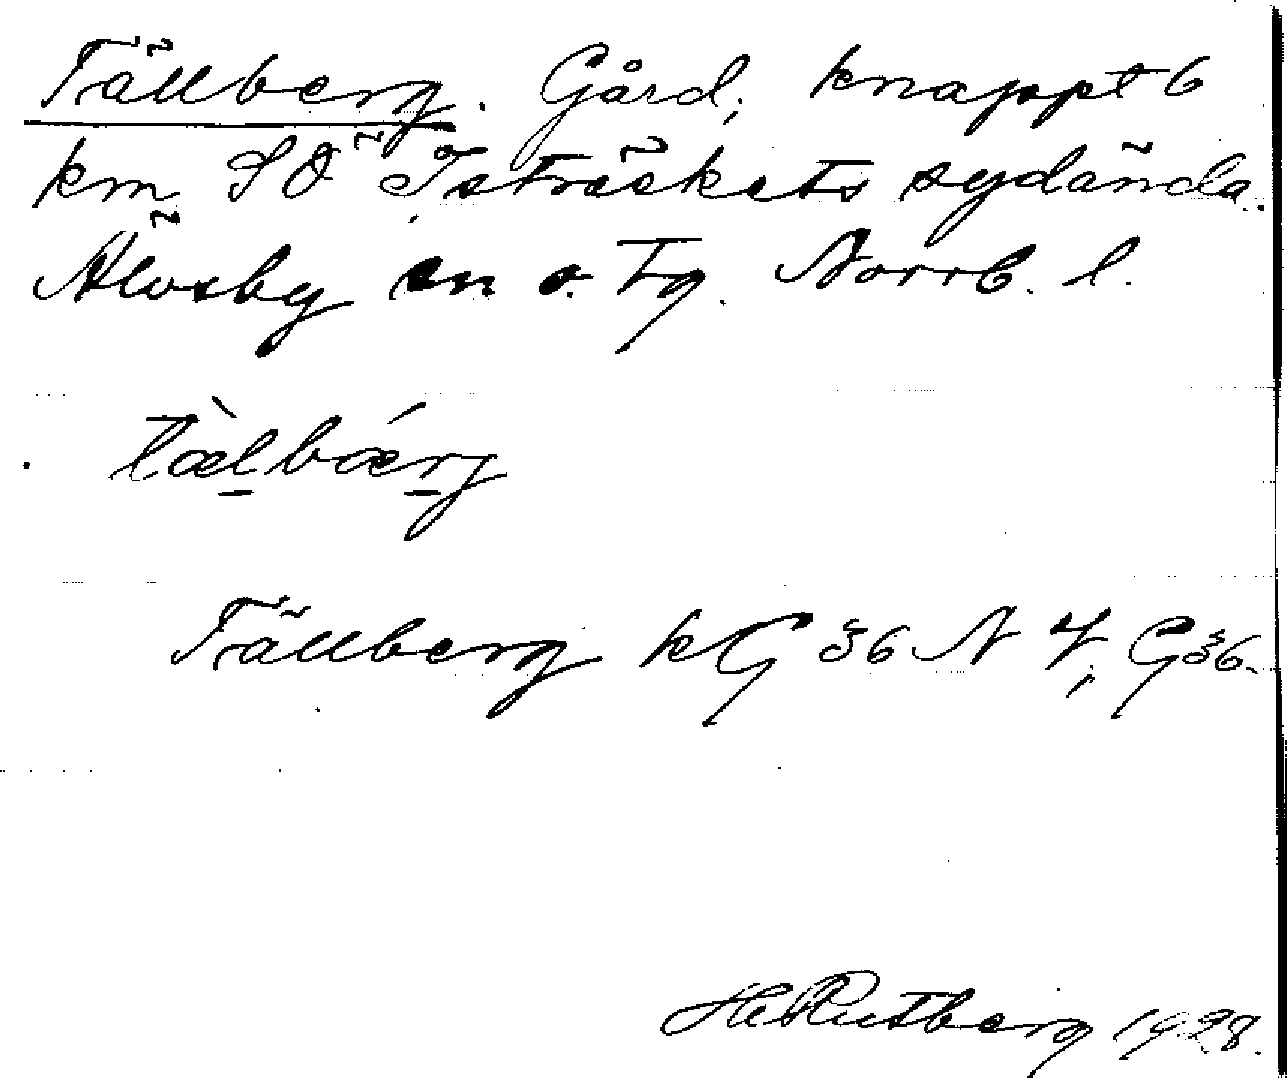 Tällberg. Gård, knappt 6
km SÖ Isträskets sydända.
Älvsby sn o. tg. Norrb. l.
tælbærg
Tällberg kG 36 N 4, G 36.
HRutberg 1928.